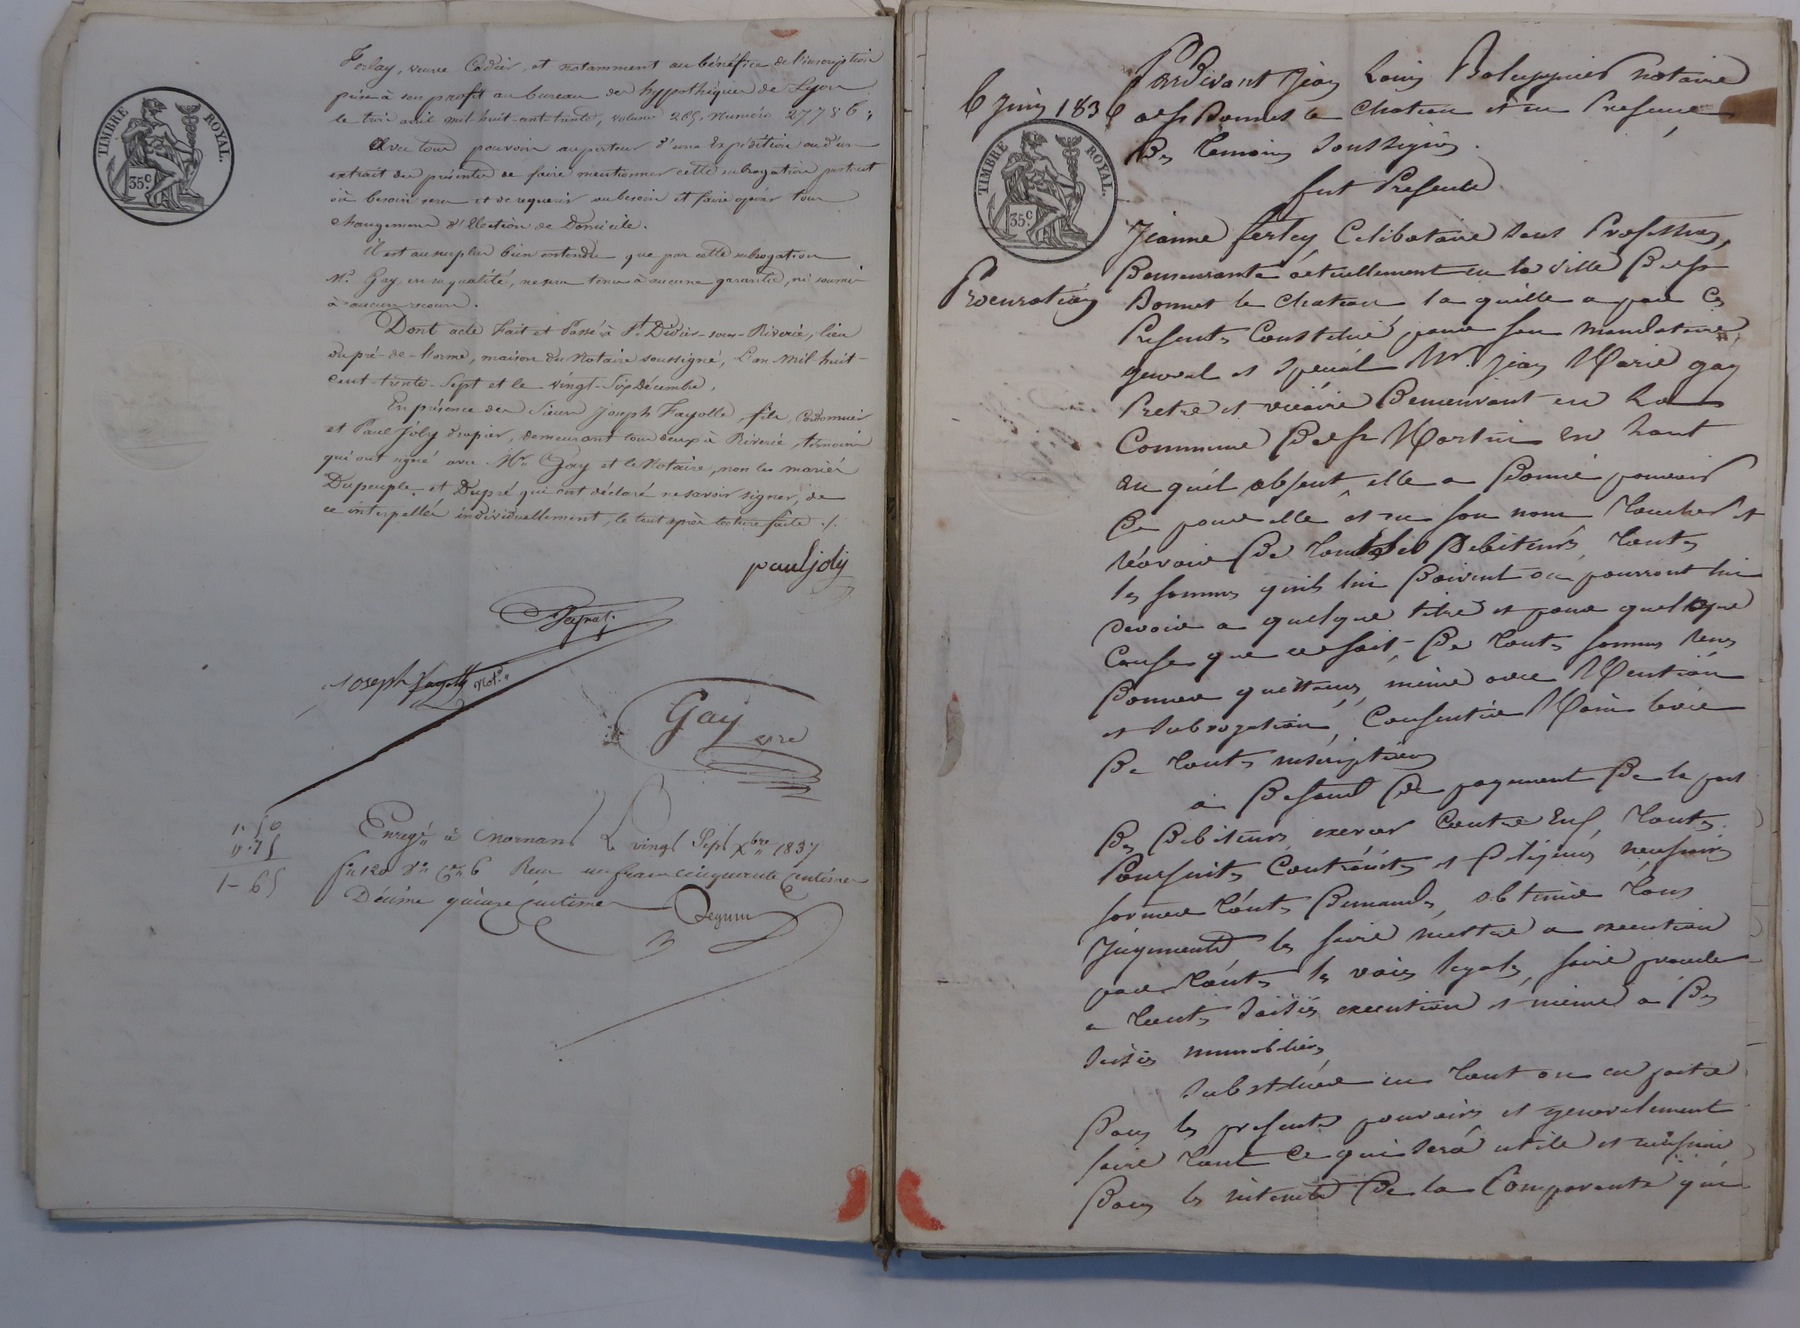 TIMBRE ROYAL.
35c
Ferlay, veuve Cadier, et notamment au bénéfice de l'inscription
prise à son profit au bureau des hypothèques de Lyon
le trois avril mil huit-cent trente, volume 265, numéro 27756;
Avec tout pouvoir au porteur d'une expédition ou d'un
extrait des présentes de faire mentionner cette subrogation partout
où besoin sera et de requérir au besoin et faire opérer tous
changemens d'Election de Domicile.
Il est au surplus bien entendu que par cette subrogation
Mr. Gay, en sa qualité, ne sera tenu à aucune garantie, ni soumis
à aucun recours.
Dont acte Fait et Passé à St. Didier-sous-Riverie, lieu
du pré-de-l'orme, maison du Notaire soussigné, L'an mil huit-
cent-trente-Sept et le vingt-Six Décembre,
En présence des Sieurs Joseph Fayolle fils, Cordonnier
et Paul Joly drapier, demeurant tous deux à Riverie, témoins
qui ont signé avec Mr. Gay et le Notaire, non les mariés
Dupeuple et Dupré qui ont déclaré ne savoir signer, de
ce interpellés individuellement, le tout après lecture faite ./.
paul joly
joseph fayolle Not.
Gay
1. 50
0.15
1-65
Enregé à Mornant Le vingt Sept Xbre 1837
fo 120 Vo Ce 6 Reçu un franc cinquante Centimes
Décime quinze centimes
6 juin 1836
TIMBRE ROYAL.
35c
Procuration
Pardevant Jean Louis notaire
a St Bonnet le Chateau et en Presence
Des temoins Soussignés.
fut Presente
Jeanne ferley Celibataire sans Profession,
Demeurante actuellement en la ville De St
Bonnet le Chateau la quelle a par Ces
Presents Constitué pour son mandataire,
general et Special Mr. Jean Marie gay
Pretre et vicaire Demeurant en La
Commune De St Martin En haut
au quel absent elle a Donné pouvoir
De pour elle et en son nom Toucher et
recevoir De Touts ses Debiteurs, Touts
les sommes qu'ils lui Doivent ou pourront lui
Devoir a quelque titre et pour quelque
Cause que ce soit - De touts sommes recus
Donner quittances, même avec Mention
et subrogation, Consentir Main levée
De touts inscriptions
a Defaut De payement De la part
Des Debiteurs exercer Contre Eux, Touts
Poursuits, Contraints et Diligences necessaires
former touts Demandes, obtenir tous
Jugements les faire mettre a execution
par touts les voies legales, faire proceder
a touts saisies execution et même a Des
saisies immobilieres
Substituer en tout ou en partie
Dans les presents pouvoirs et generalement
faire tout Ce qui sera utile et necessaire
Dans les interets De la Comparante qui